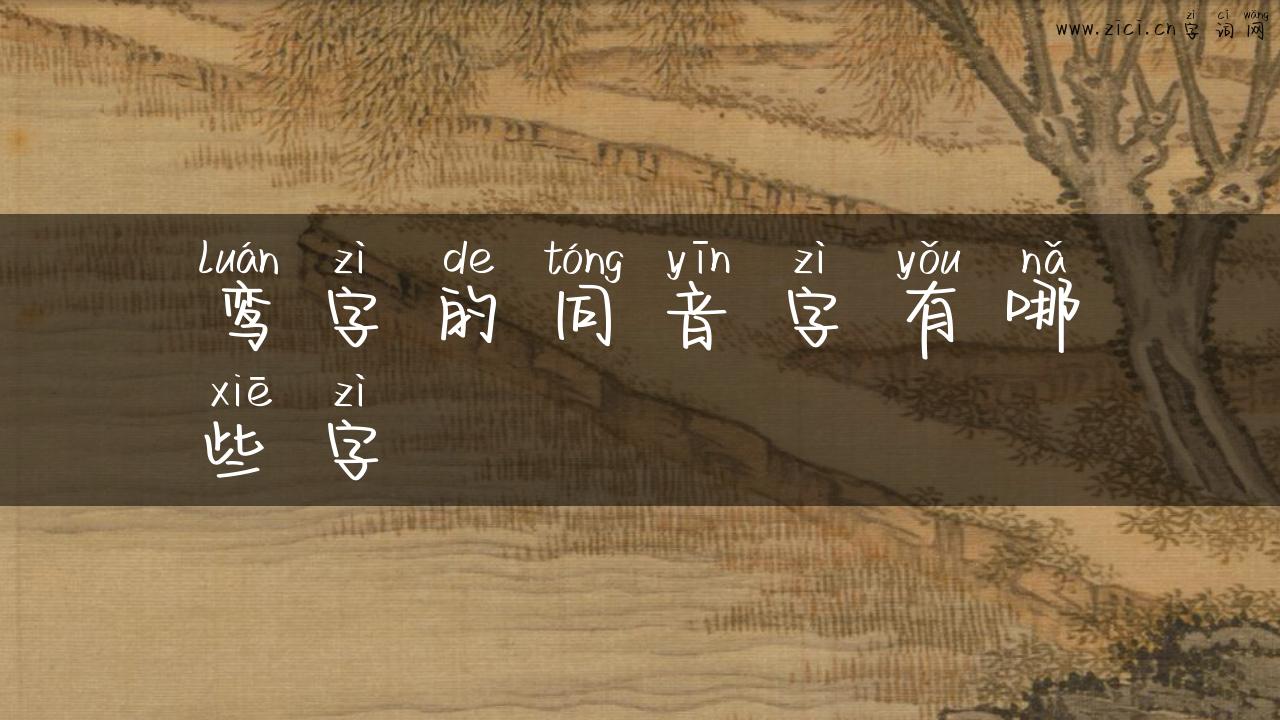 zì cí wǎng
www.zici.cn字词网
luán zì de tóng yīn zì yǒu nǎ
鸾字的同音字有哪
xiē zì
些字